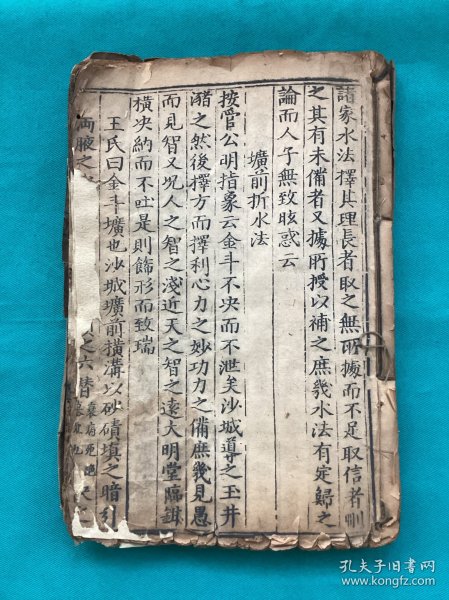 諸家水法擇其理長者取之無所據而不足取信者刪
之其有未備者又據所授以補之庶幾水法有定歸之
論而人子無致眩惑云
壙前折水法
按管公明指象云金斗不央而不泄矣沙城導之玉井
豬之然後擇方而擇利心力之妙功力之備庶幾見愚
而見智又况人之智之淺近天之智之遠大明堂隔
横央納而不吐是則飾形而致瑞
王氏曰金斗壙也沙城壙前横溝以砂磧填之暗引
兩腋之
之六替
孔夫子旧书网
www.kongfz.com